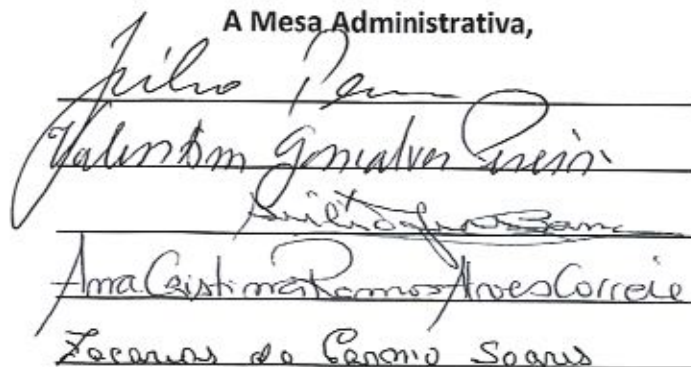 A Mesa Administrativa,
Júlio
Valentim Gonçalves Pereira

Ana Cristina Ramos Alves Correia
Zacarias do Carmo Soares